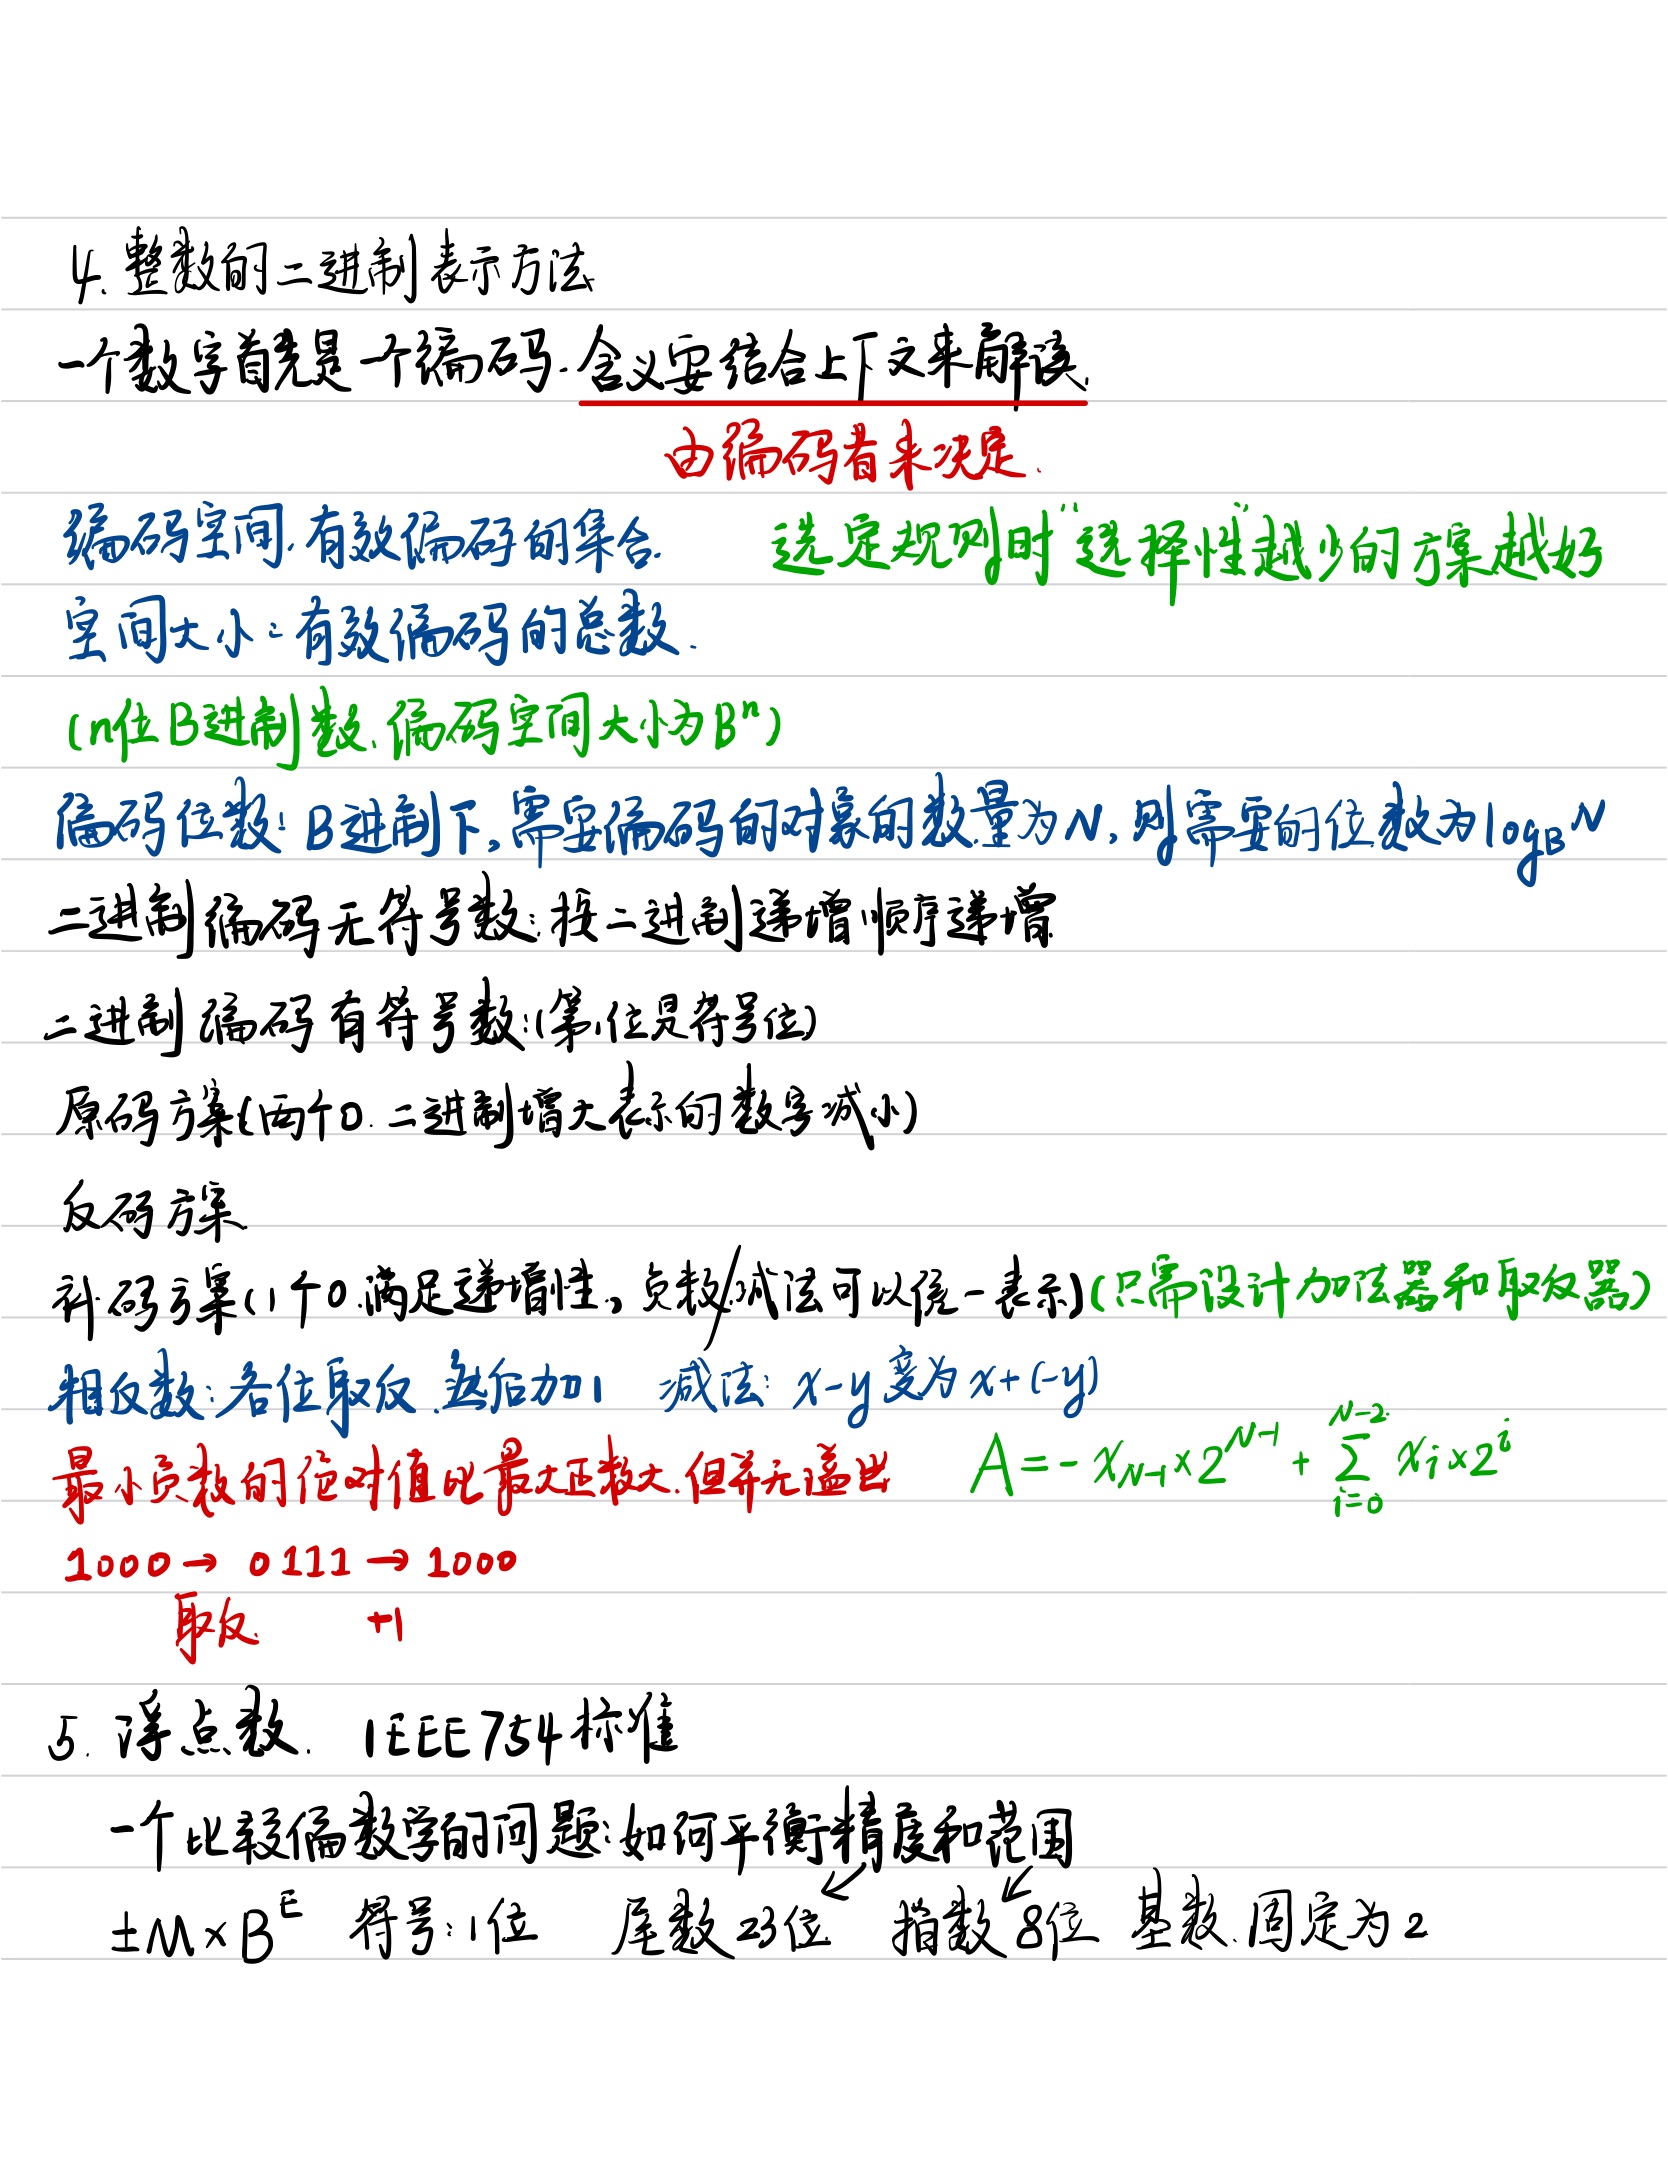 4. 整数的二进制表示方法
一个数字首先是一个编码. 含义要结合上下文来解读.
由编码者来决定.
编码空间. 有效编码的集合. 选定规则时"选择性"越少的方案越好
空间大小: 有效编码的总数.
(n位B进制数. 编码空间大小为Bⁿ)
编码位数: B进制下, 需要编码的对象的数量为N, 则需要的位数为log_B N
二进制编码无符号数: 按二进制递增顺序递增
二进制编码有符号数: (第1位是符号位)
原码方案(两个0. 二进制增大表示的数字减小)
反码方案.
补码方案(1个0. 满足递增性, 负数/减法可以统一表示)(只需设计加法器和取反器)
相反数: 各位取反. 然后加1 减法: x-y 变为 x+(-y)
最小负数的绝对值比最大正数大. 但并无溢出 A = - x_{N-1} × 2^{N-1} + \sum_{i=0}^{N-2} x_i × 2^i
1000 → 0111 → 1000
取反. +1
5. 浮点数. IEEE754标准
一个比较偏数学的问题: 如何平衡精度和范围
±M×B^E 符号: 1位 尾数23位 指数8位 基数. 固定为2